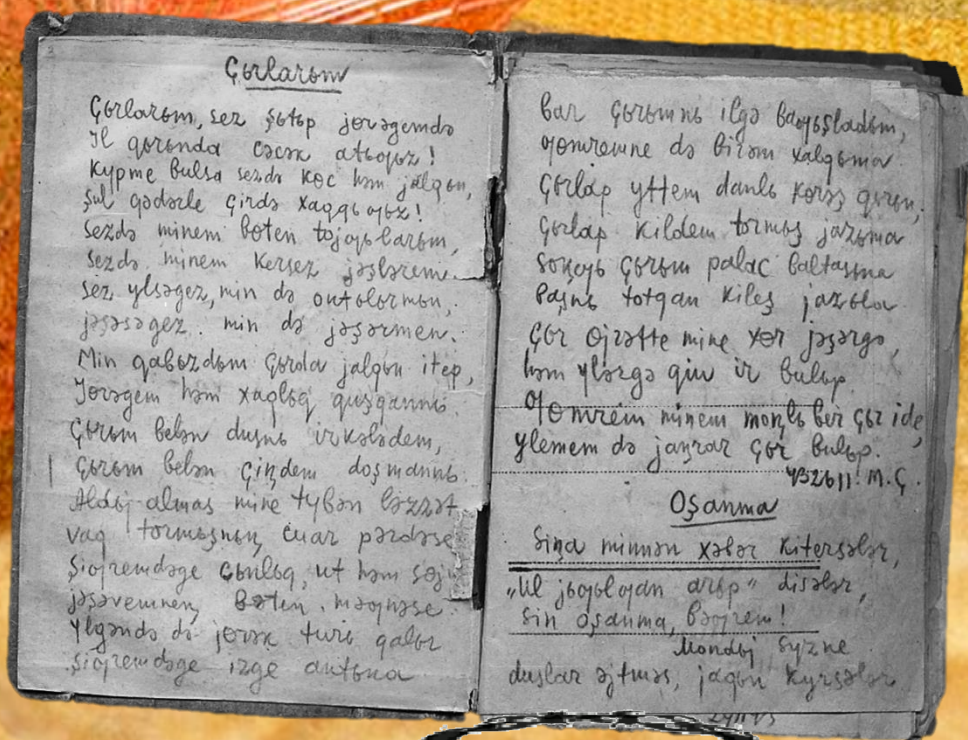 Çьrlarьm
Çьrlarьm, sez şьtьp jɵrəgemdə
Il qьrьnda cəcək atьƣьz!
Kypme bulsa sezdə kɵc həm jalqьn,
Şul qədərle çirdə xaqqьƣьz!
Sezdə minem bɵten tojƣьlarьm,
Sezdə minem kersez jəşlərem.
Sez ylsəgez, min də onьtьlьrmьn,
jəşəsəgez min də jəşərmen.
Min qabьzdьm çьrda jalqьn itep,
Jɵrəgem həm xaqlьq quşqannь.
Çьrьm belən dusnь irkələdem,
Çьrьm belən çiꞑdem doşmannь.
Aldьj almas mine tybən ləzzət
vaq tormьşnьꞑ cuar pərdəse
Şiƣremdəge cьnlьq, ut həm søjy
jəşəvemneꞑ bɵten məƣnəse.
Ylgəndə də jɵrək turь qalьr
Şiƣremdəge izge antьna
bar çьrьmnь ilgə baƣьşladьm,
ƣomremne də birəm xalqьma
Çьrlap yttem danlь kɵrəş qьrьn,
Çьrlap kildem tormьş jazьna
Soꞑƣь çьrьm palac baltasьna
Başnь totqan kileş jazьla
Çьr ɵjrətte mine xɵr jəşərgə,
həm ylərgə qiu ir bulьp.
ƣomrem minem moꞑlь ber çьr ide,
ylemem də jaꞑrar çьr bulьp.
M. Ç.
Oşanma
Siꞑa minnən xəbər kitersələr,
„Ul jьƣьlƣan arьp“ disələr,
Sin oşanma, bəƣrem!
Mondьj syzne
duslar əjtməs, jaqьn kyrsələr